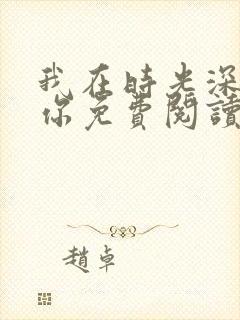 我在時光深
你免費閱讀
趙卓